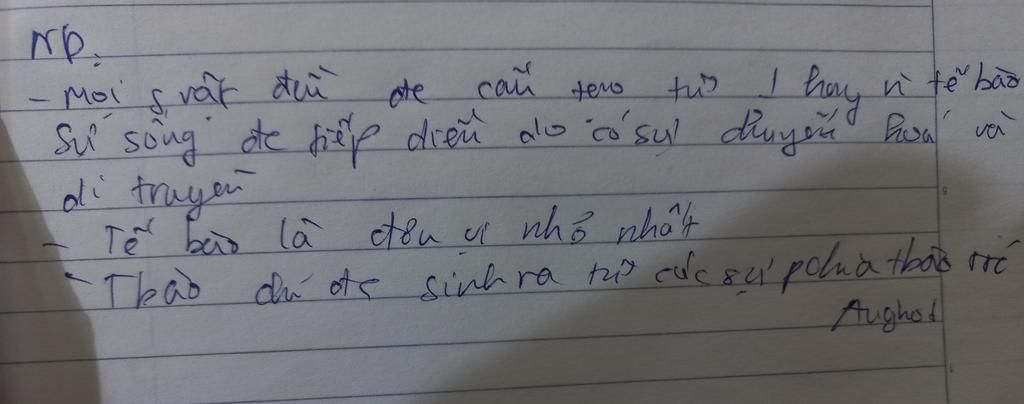 ND.
- Mọi s vật đều đc cấu tạo từ 1 hay n tế bào
Sự sống đc tiếp diễn do có sự chuyển hoá và
di truyền
- Tế bào là đơn vị nhỏ nhất
- Tbào chỉ đc sinh ra từ các sự pchia tbào trc